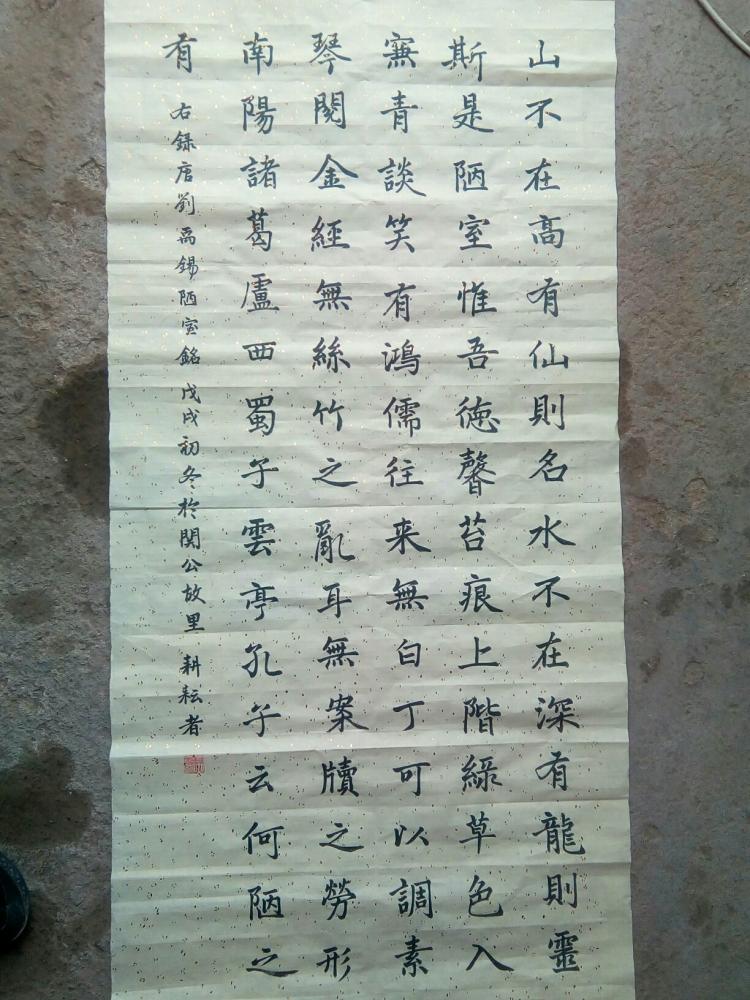 山不在高有仙則名水不在深有龍則靈
斯是陋室惟吾德馨苔痕上階綠草色入
簾青談笑有鴻儒往来無白丁可以調素
琴閱金經無絲竹之亂耳無案牘之勞形
南陽諸葛廬西蜀子雲亭孔子云何陋之
有
右録唐劉禹錫陋室銘戊戌初冬於関公故里 耕耘者